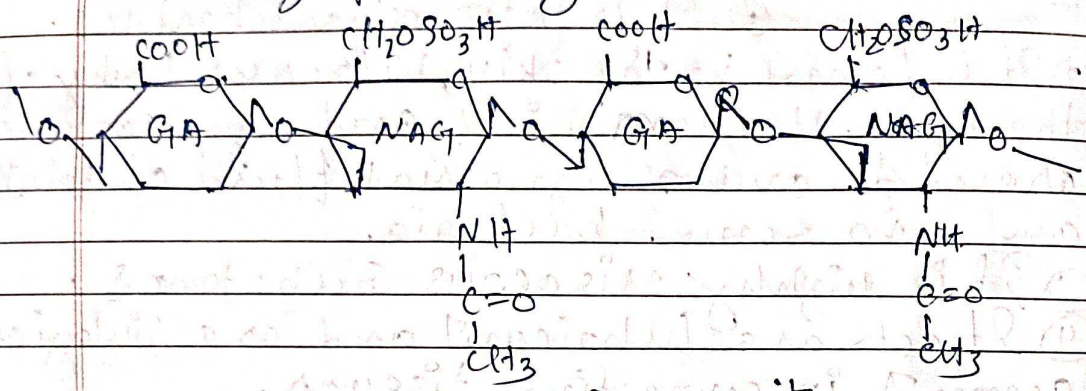 COOH CH₂OSO₃H COOH CH₂OSO₃H
O O O O
O GA O NAG O GA O NAG O
NH NH
C=O C=O
CH₃ CH₃